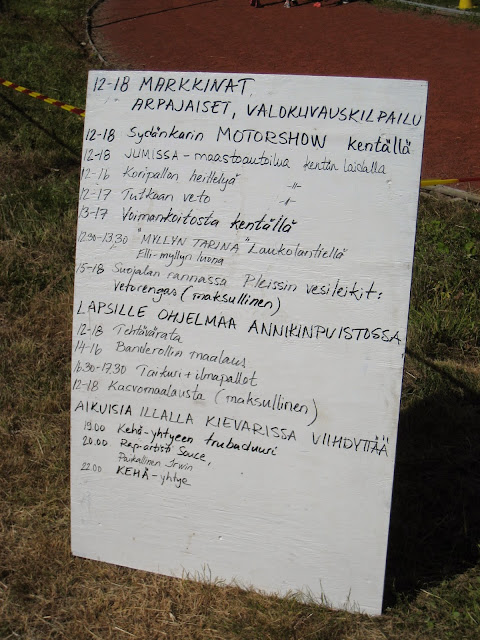 12-18 MARKKINAT,
ARPAJAISET, VALOKUVAUSKILPAILU
12-18 Sydänkarin MOTORSHOW kentällä
12-18 JUMISSA - maastoautoilua kentän laidalla
12-16 Koripallon heittelyä -"-
12-17 Tutkaan veto -"-
13-17 Voimankoitosta kentällä
12.30-13.30 "MYLLYN TARINA" Laukolantiellä
Elli-myllyn luona
15-18 Suojalan rannassa Pleissin vesileikit:
vetorengas (maksullinen)
LAPSILLE OHJELMAA ANNIKINPUISTOSSA
12-18 Tehtävärata
14-16 Banderollin maalaus
16.30-17.30 Taikuri + ilmapallot
12-18 Kasvomaalausta (maksullinen)
AIKUISIA ILLALLA KIEVARISSA VIIHDYTTÄÄ
19.00 Kehä-yhtyeen trubaduuri
20.00 Rap-artisti Sauce,
Paikallinen Irwin
22.00 KEHÄ-yhtye